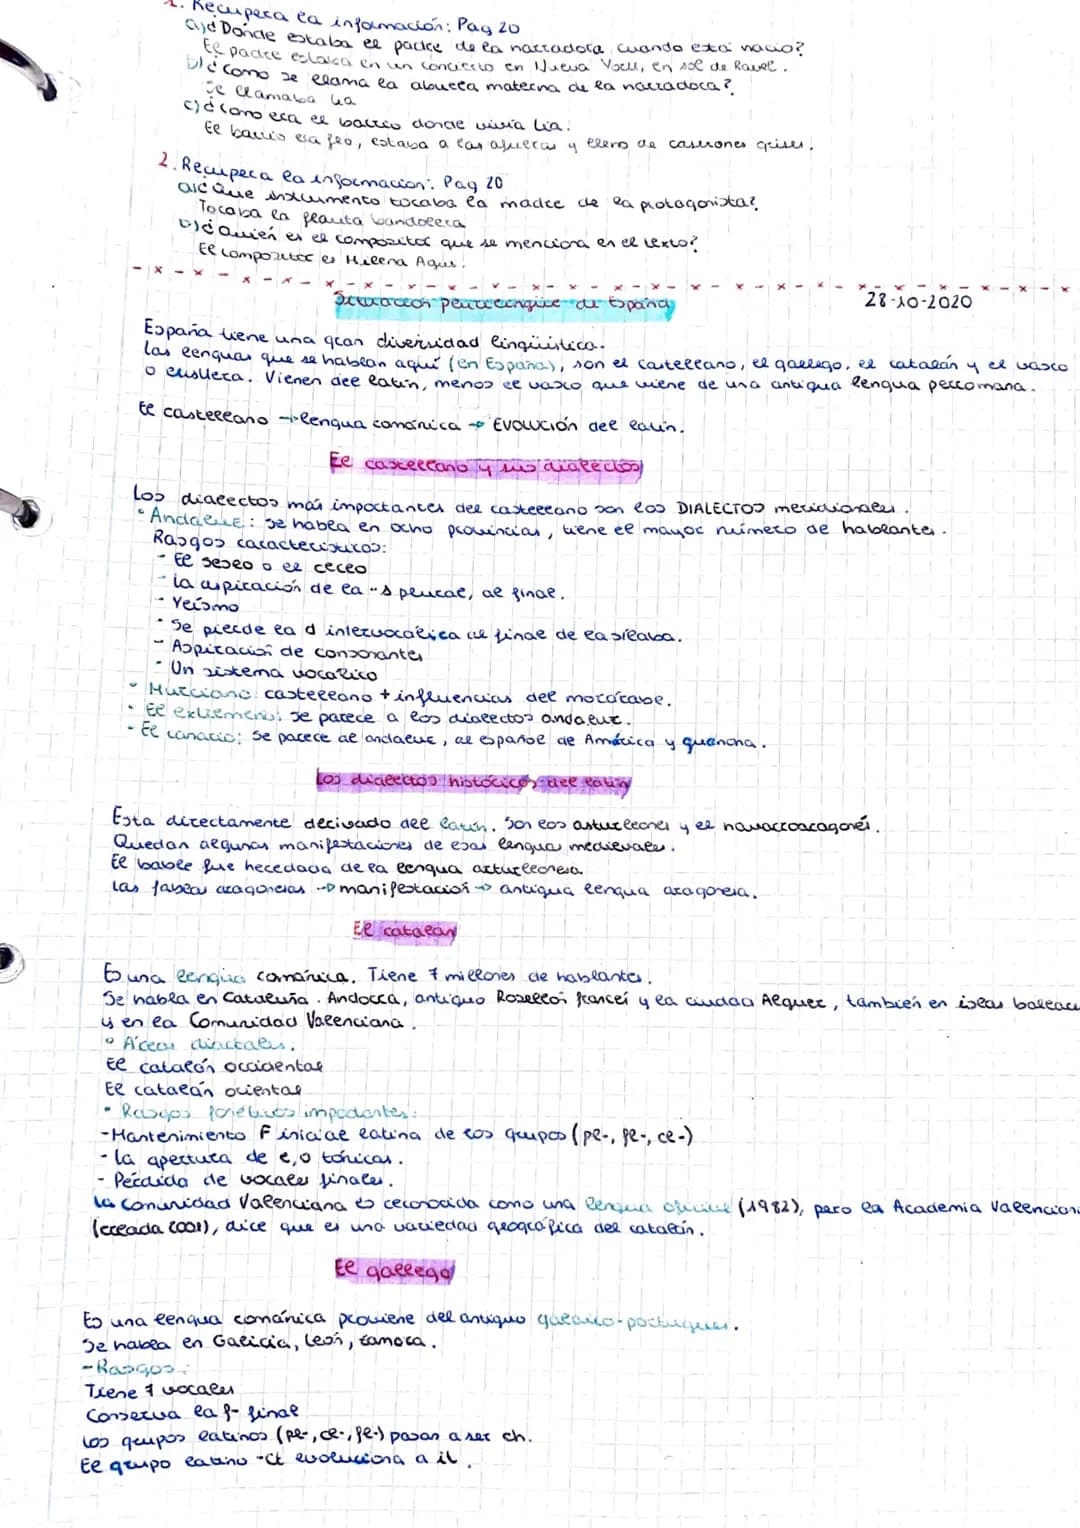 1. Recupera la información: Pag 20
a)¿Donde estaba el padre de la narradora cuando esta nació?
El padre estaba en un concierto en Nueva York, en sol de Ravel.
b)¿como se llama la abuela materna de la narradora?
Se llamaba Lia
c)¿Como era el barrio donde vivia Lia.
El barrio era feo, estaba a las afueras y lleno de caserones grises.
2. Recupera la informacion: Pag 20
a)¿Que instrumento tocaba la madre de la protagonista?
Tocaba la flauta bandolera
b)¿Quién es el compositor que se menciona en el texto?
El compositor es Hilena Agus.
Situación plurilingüe de España
28-10-2020
España tiene una gran diversidad lingüística.
Las lenguas que se hablan aquí (en España), son el castellano, el gallego, el catalán y el vasco
o euskera. Vienen del latin, menos el vasco que viene de una antigua lengua perromana.
El castellano → lengua románica → EVOLUCIÓN del latín.
El castellano y sus dialectos
Los dialectos más importantes del castellano son los DIALECTOS meridionales.
• Andaluz: Se habla en ocho provincias, tiene el mayor número de hablantes.
Rasgos caracteristicos:
- El seseo o el ceceo
- La aspiración de la -s plural, al final.
- Yeísmo
- Se pierde la d intervocálica al final de la sílaba.
- Aspiración de consonantes
- Un sistema vocálico
• Murciano: castellano + influencias del mozárabe.
• El extremeño: se parece a los dialectos andaluz.
- El canario: Se parece al andaluz, al español de América y guancha.
Los dialectos históricos del latín
Esta directamente derivado del latín. Son los asturleonés y el navarroaragonés.
Quedan algunas manifestaciones de esas lenguas medievales.
El bable fue heredada de la lengua asturleonesa.
Las fablas aragonesas → manifestación → antigua lengua aragonesa.
El catalán
Es una lengua románica. Tiene 7 millones de hablantes.
Se habla en Cataluña. Andorra, antiguo Rosellón francés y la ciudad Alguer, también en islas balear
y en la Comunidad Valenciana.
• Áreas dialectales.
El catalán occidental
El catalán oriental
• Rasgos fonéticos importantes:
-Mantenimiento F inicial latina de los grupos (pl-, fl-, cl-)
- La apertura de e,o tónicas.
- Pérdida de vocales finales.
La Comunidad Valenciana es reconocida como una lengua oficial (1982), pero la Academia Valencian
(creada 2001), dice que es una variedad geográfica del catalán.
El gallego
Es una lengua románica proviene del antiguo galaico-portugues.
Se habla en Galicia, León, Zamora.
- Rasgos:
Tiene 7 vocales
Conserva la f- final
Los grupos latinos (pl-, cl-, fl-) pasan a ser ch.
El grupo latino -ct evoluciona a it.